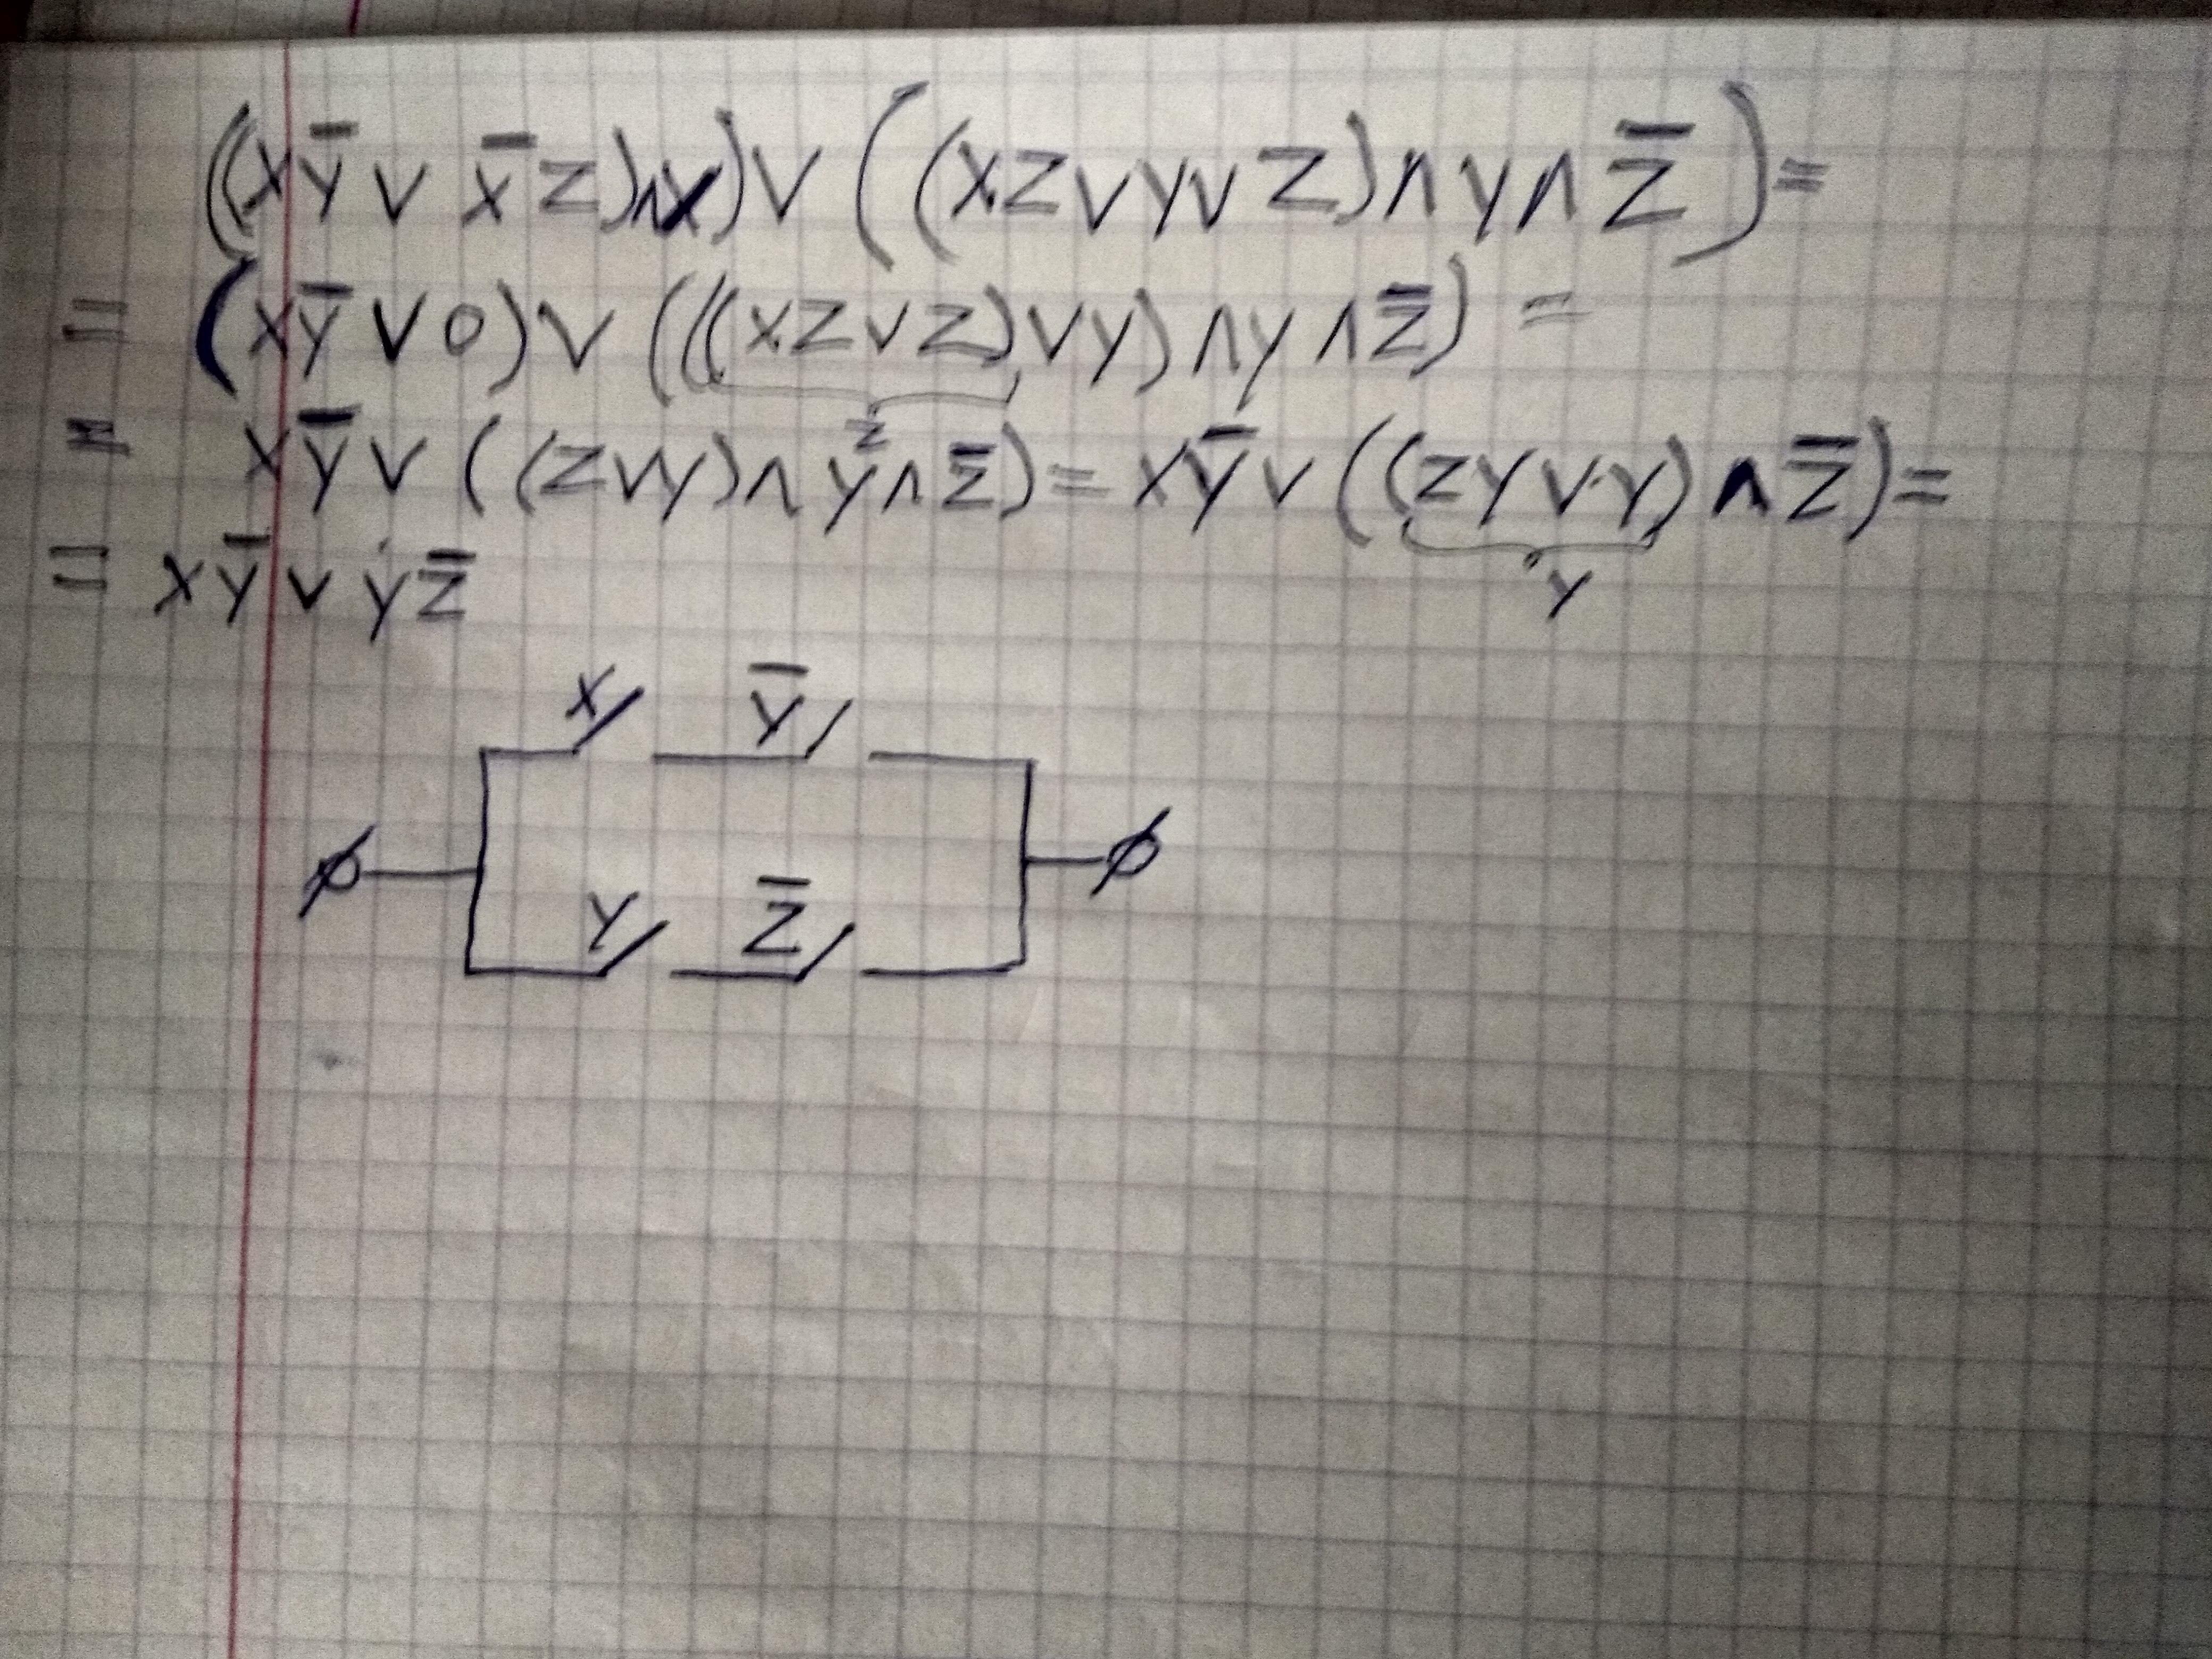 ((xȳ ∨ x̄z)∧x) ∨ ((xz∨y∨z)∧y∧z̄) =
= (xȳ ∨ 0) ∨ (((xz∨z)∨y)∧y∧z̄) =
z
= xȳ ∨ ((z∨y)∧y∧z̄) = xȳ ∨ ((zy∨y)∧z̄) =
y
= xȳ ∨ yz̄
x ȳ
y z̄